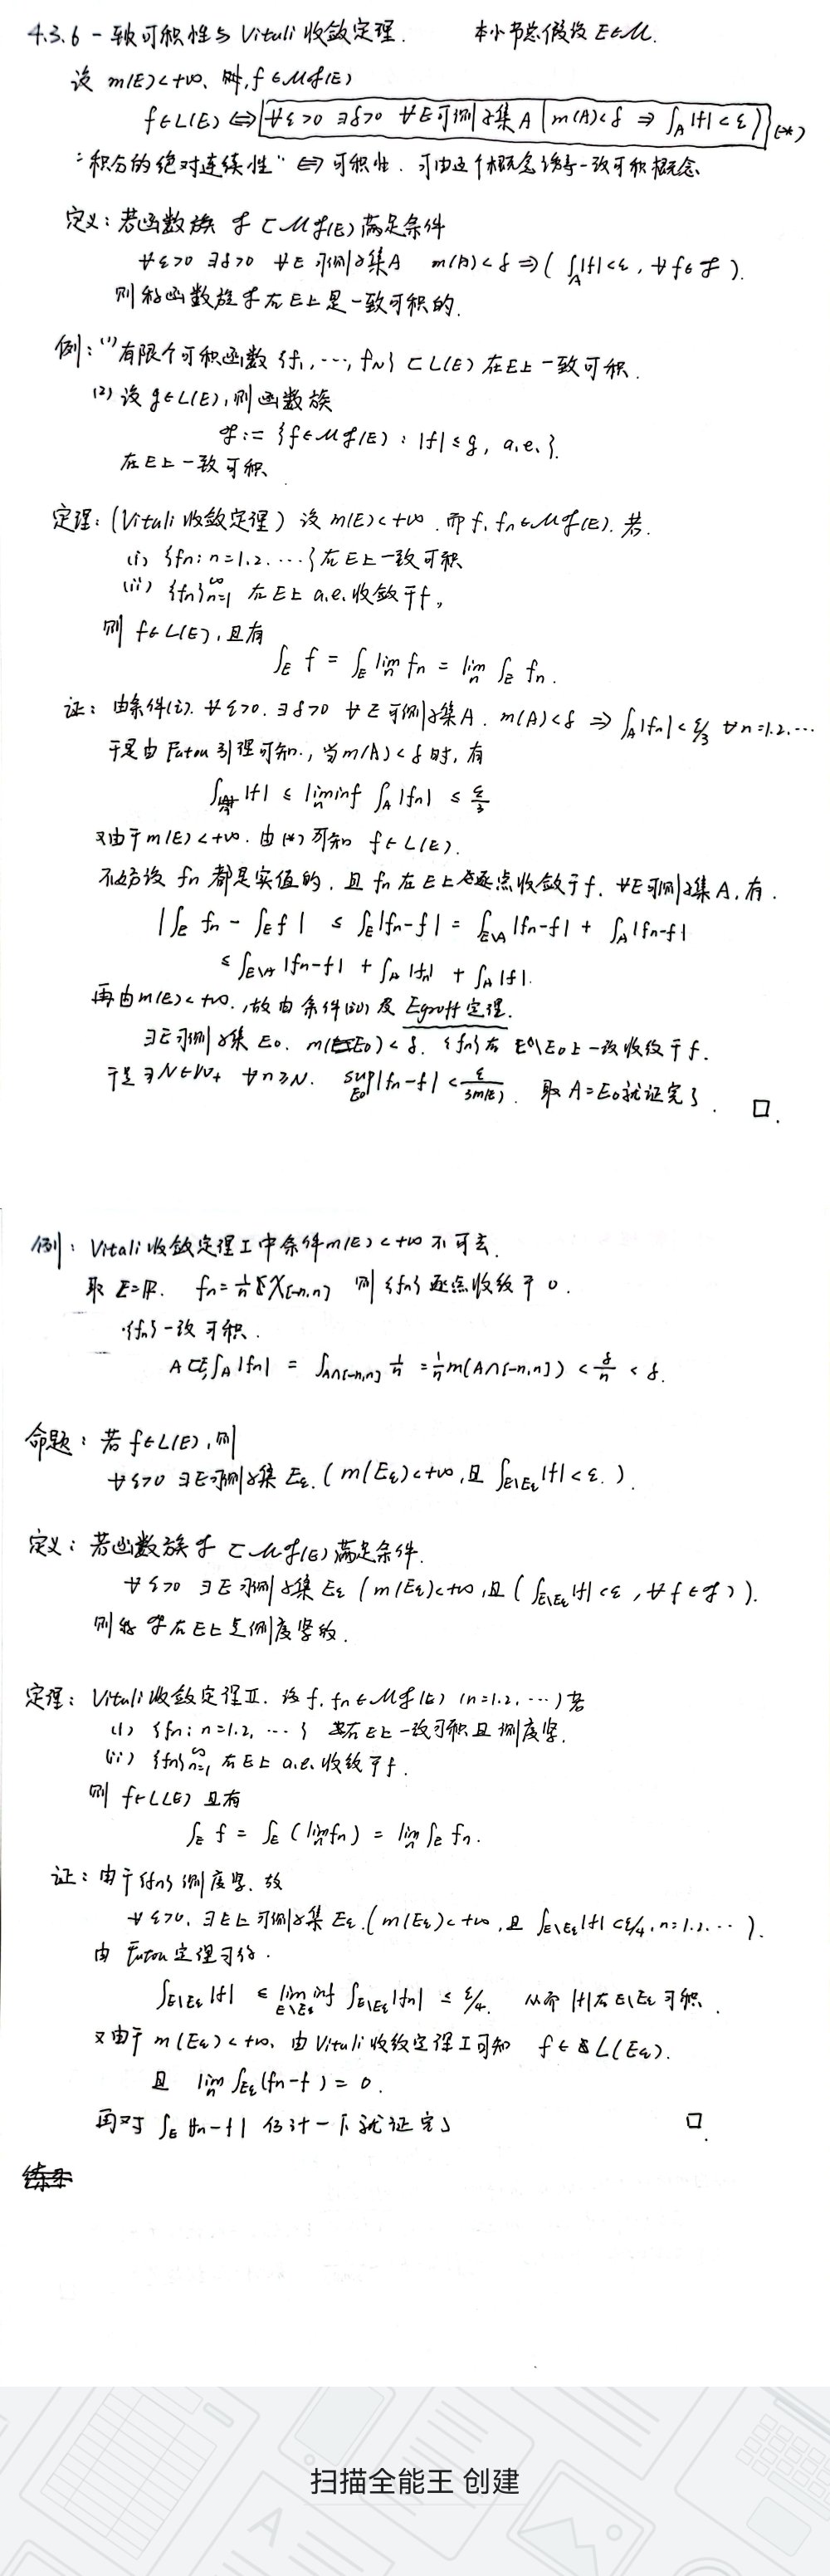 4.3.6 一致可积性与 Vituli 收敛定理. 本小节总假设 E∈M.
设 m(E)<+∞, 则, f∈Mf(E)
f∈L(E) ⟺ ∀ε>0 ∃δ>0 ∀E可测子集A (m(A)<δ ⇒ ∫_A |f|<ε) (*)
"积分的绝对连续性" ⟺ 可积性. 可由这个概念诱导一致可积概念.
定义: 若函数族 ℱ⊂Mf(E) 满足条件
∀ε>0 ∃δ>0 ∀E可测子集A m(A)<δ ⇒ (∫_A |f|<ε, ∀f∈ℱ).
则称函数族ℱ在E上是一致可积的.
例: (1) 有限个可积函数 {f₁, ⋯, f_N}⊂L(E) 在E上一致可积.
(2) 设 g∈L(E), 则函数族
ℱ := {f∈Mf(E) : |f|≤g, a.e.}.
在E上一致可积
定理: (Vituli 收敛定理) 设 m(E)<+∞. 而 f, fn∈Mf(E). 若.
(i) {fn: n=1.2. ⋯}在E上一致可积
(ii) {fn}_{n=1}^∞ 在E上 a.e.收敛于f,
则 f∈L(E), 且有
∫_E f = ∫_E lim_n fn = lim_n ∫_E fn.
证: 由条件(i). ∀ε>0. ∃δ>0 ∀E可测子集A. m(A)<δ ⇒ ∫_A |fn|<ε/3 ∀n=1.2.⋯
于是由 Fatou 引理可知., 当m(A)<δ时, 有
∫_A |f| ≤ liminf_n ∫_A |fn| ≤ ε/3
又由于 m(E)<+∞. 由(*)可知 f∈L(E).
不妨设 fn 都是实值的, 且 fn 在E上逐点收敛于f. ∀E可测子集A, 有.
|∫_E fn - ∫_E f| ≤ ∫_E |fn-f| = ∫_{E\A} |fn-f| + ∫_A |fn-f|
≤ ∫_{E\A} |fn-f| + ∫_A |fn| + ∫_A |f|.
再由m(E)<+∞., 故由条件(ii)及 Egroff 定理.
∃E可测子集 E₀. m(E₀)<δ. {fn}在 E\E₀上一致收敛于f.
于是 ∃N∈ℕ₊ ∀n≥N. sup_{E₀} |fn-f| < ε/3m(E). 取 A=E₀就证完了. □.
例: Vitali 收敛定理I中条件m(E)<+∞不可去.
取 E=ℝ. fn=1/n χ_{[-n,n]} 则{fn}逐点收敛于0.
{fn}一致可积.
A⊂E, ∫_A |fn| = ∫_{A∩[-n,n]} 1/n = 1/n m(A∩[-n,n]) < δ/n < δ.
命题: 若 f∈L(E), 则
∀ε>0 ∃E可测子集 Eε. (m(Eε)<+∞, 且 ∫_{E\Eε} |f|<ε.).
定义: 若函数族ℱ⊂Mf(E)满足条件.
∀ε>0 ∃E可测子集 Eε (m(Eε)<+∞, 且 (∫_{E\Eε} |f|<ε, ∀f∈ℱ)).
则称ℱ在E上是测度紧的.
定理: Vituli 收敛定理II. 设 f, fn∈Mf(E) (n=1.2, ⋯) 若
(i) {fn: n=1.2, ⋯} 在E上一致可积且测度紧.
(ii) {fn}_{n=1}^∞ 在E上 a.e. 收敛于f.
则 f∈L(E) 且有
∫_E f = ∫_E (lim_n fn) = lim_n ∫_E fn.
证: 由于{fn}测度紧. 故
∀ε>0. ∃E上可测子集 Eε. (m(Eε)<+∞, 且 ∫_{E\Eε} |f|<ε/4, n=1.2.⋯).
由 Fatou 定理可得.
∫_{E\Eε} |f| ≤ liminf_{E\Eε} ∫_{E\Eε} |fn| ≤ ε/4. 从而 |f|在E\Eε 可积.
又由于 m(Eε)<+∞, 由Vituli收敛定理I可知 f∈L(Eε).
且 lim_n ∫_{Eε} (fn-f) = 0.
再对 ∫_E |fn-f| 估计一下就证完了 □.
扫描全能王 创建